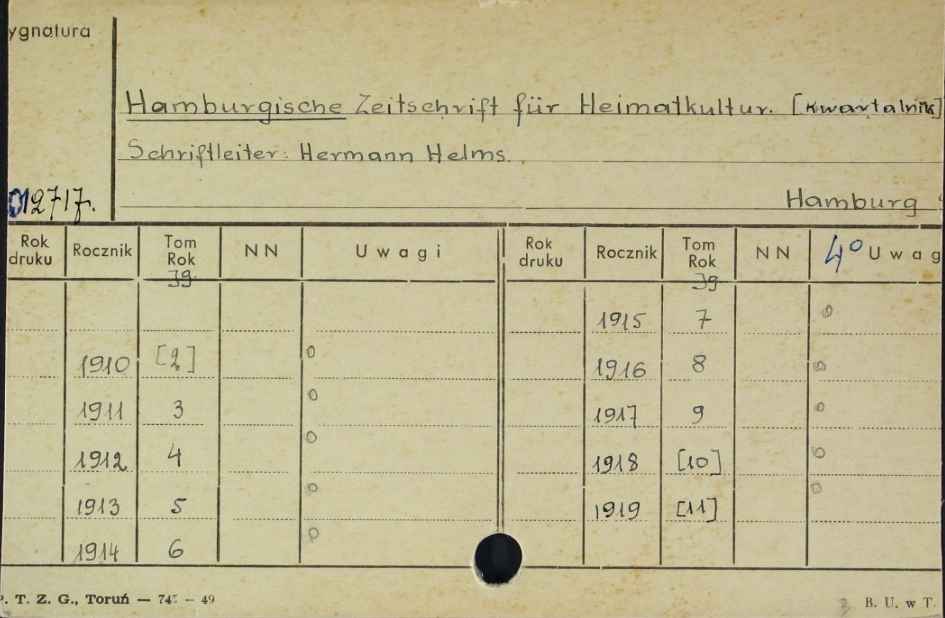 ygnatura
Hamburgische Zeitschrift für Heimatkultur. [Kwartalnik]
Schriftleiter: Hermann Helms.
012717.
Hamburg
Rok druku Rocznik Tom Rok Jg. NN Uwagi Rok druku Rocznik Tom Rok Jg NN 4° Uwag
1915 7 o
1910 [2] o 1916 8 o
1911 3 o 1917 9 o
1912 4 o 1918 [10] o
1913 5 o 1919 [11] o
1914 6 o
P. T. Z. G., Toruń — 49
B. U. w T.